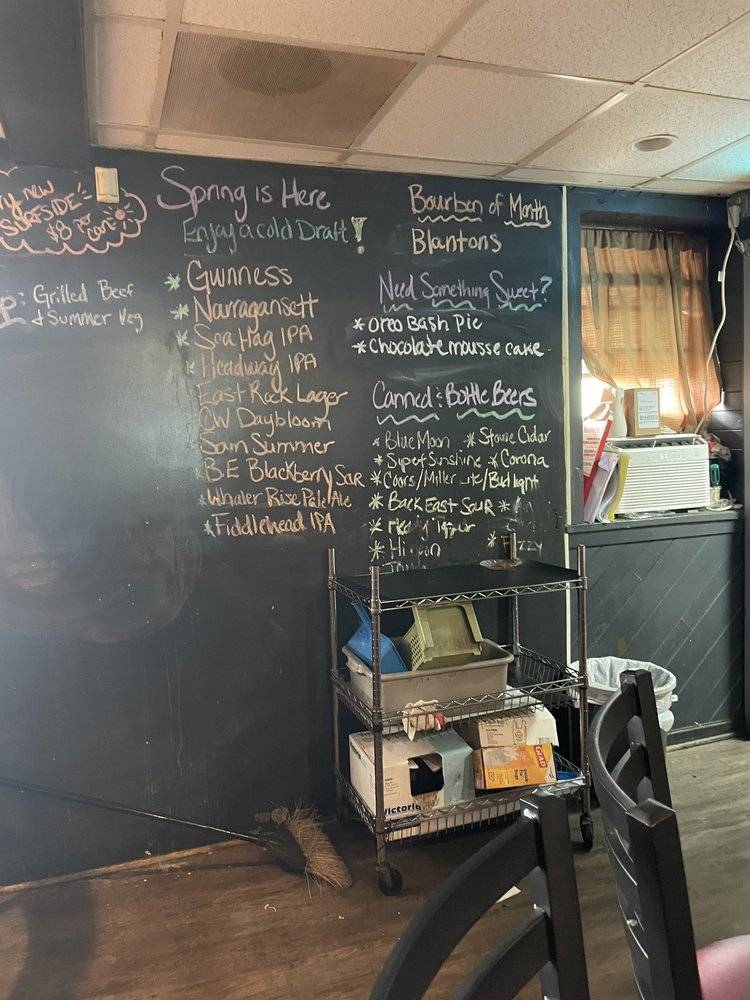 new
SURFSIDE
$8 per
can
: Grilled Beef
& Summer Veg
Spring is Here
Enjay a cold Draft!
* Guinness
* Narragansett
* Sea Hag IPA
* Headway IPA
East Rock Lager
CW Daybloom
Sam Summer
B.E Blackberry Sour
* Whaler Rise Pale Ale
* Fiddlehead IPA
Bourbon of Month
Blantons
Need Something Sweet?
* Oreo Bash Pie
* Chocolate mousse cake
Canned & Bottle Beers
* Blue Moon * Stowe Cidar
* Sipof Sunshine * Corona
* Coors/Miller Lite/Bud light
* Back East Sour *
*
*
GLAD
Victoria